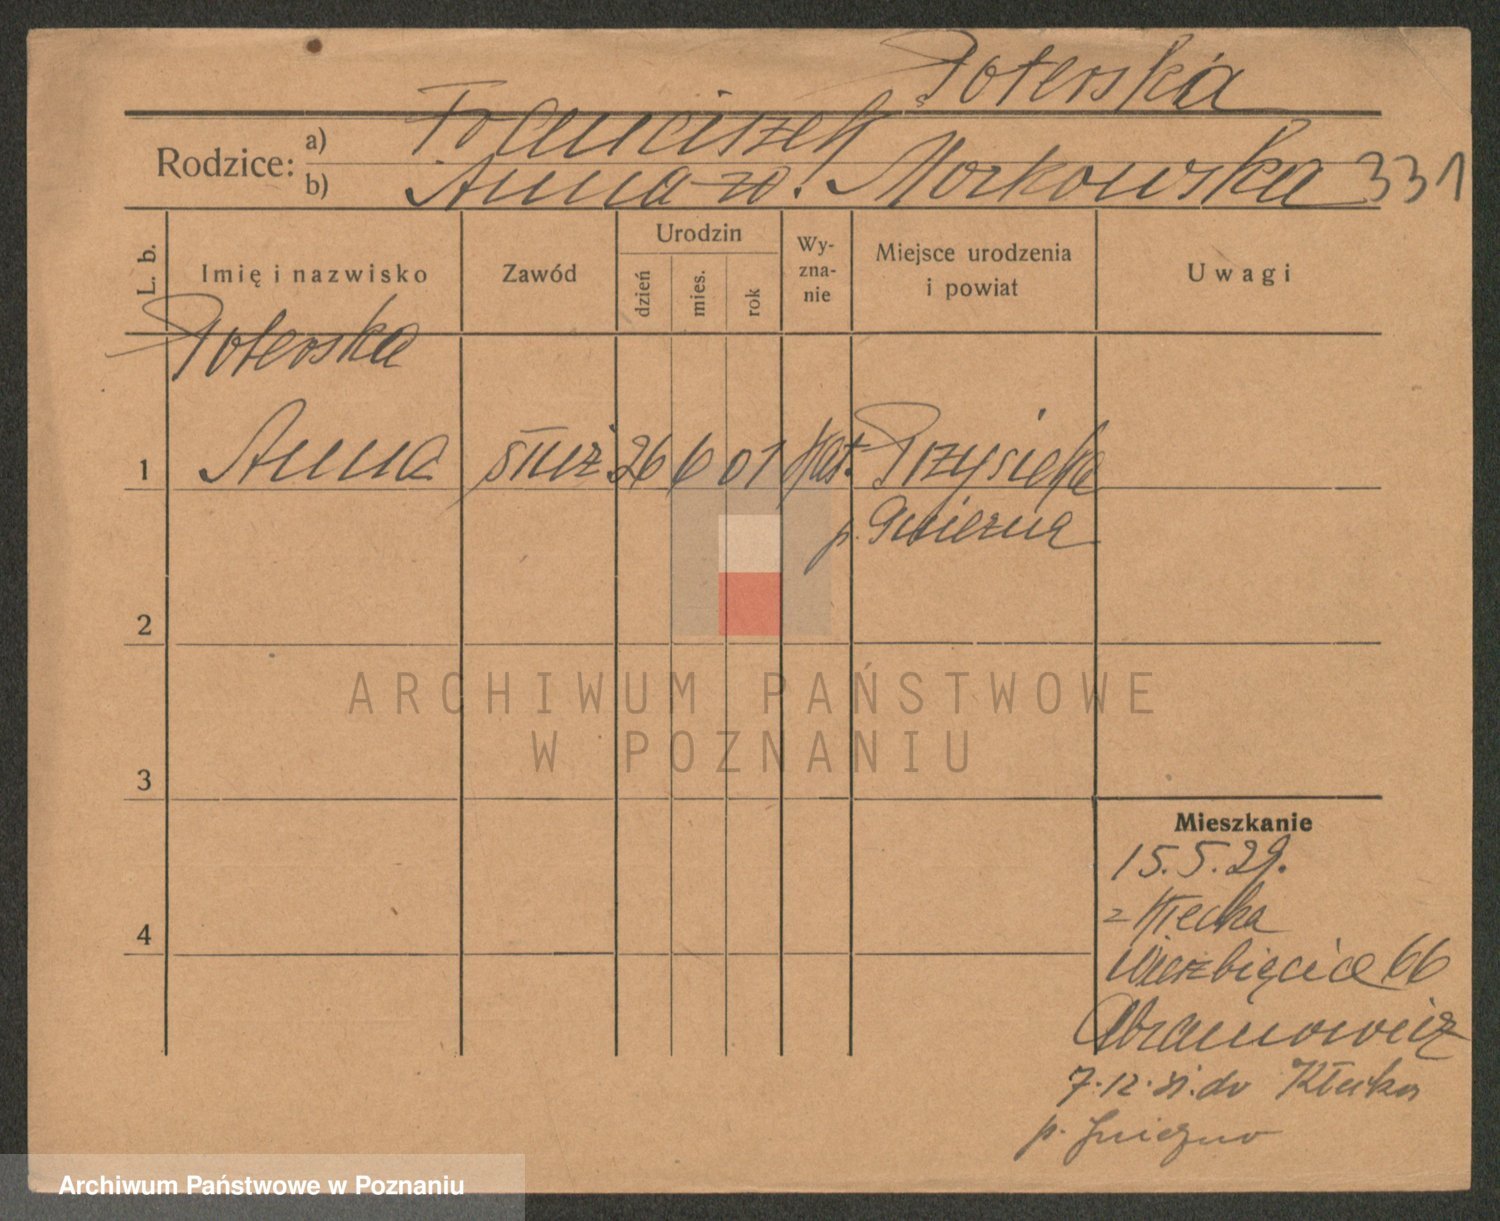 Poterska
Rodzice: a) Franciszek
b) Anna zd. Morkowska 331
L. b. Imię i nazwisko Zawód Urodzin dzień mies. rok Wy-zna-nie Miejsce urodzenia i powiat Uwagi
Poterska
1 Anna służ 26 6 01 kat. Przysieka
p. Gniezna
2
3
4
Mieszkanie
15.5.29.
z Kłecka
Wierzbięcice 66
Abramowicz
7.12.31. do Kłecka
p. Gniezno
ARCHIWUM PAŃSTWOWE
W POZNANIU
Archiwum Państwowe w Poznaniu